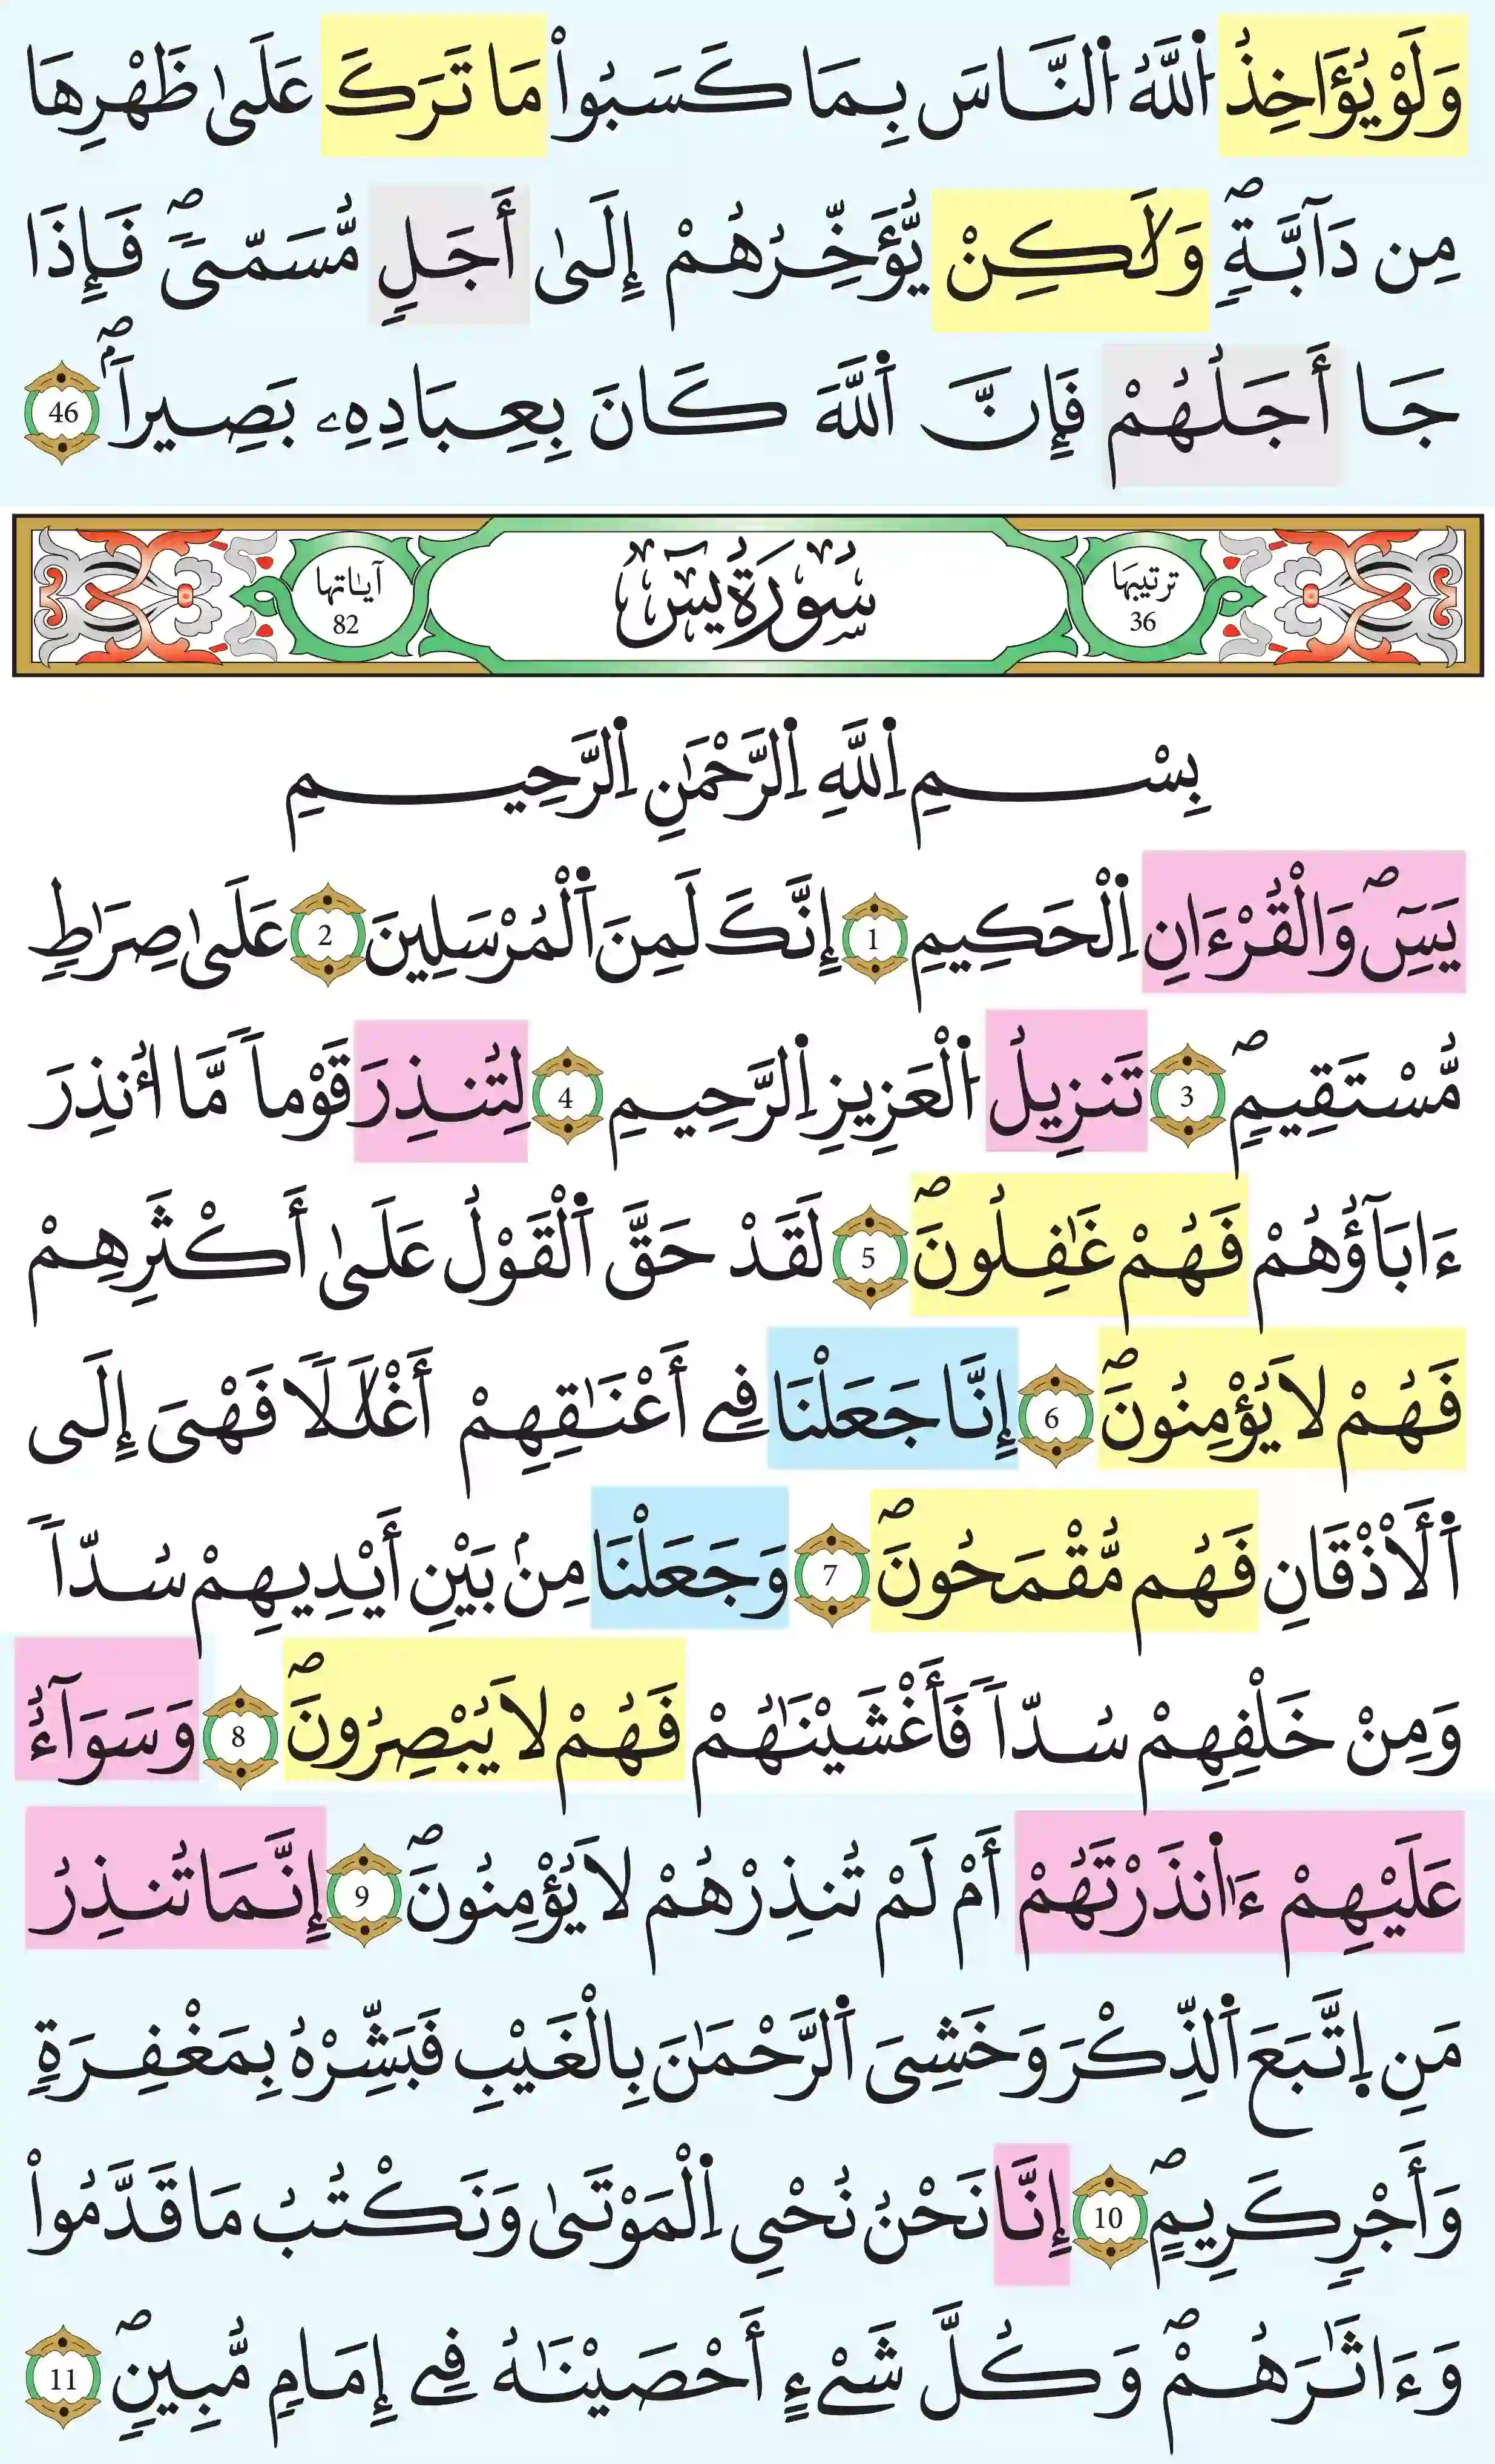 وَلَوْ يُؤَاخِذُ اُ۬للَّهُ اُ۬لنَّاسَ بِمَا كَسَبُواْ مَا تَرَكَ عَلَىٰ ظَهْرِهَا
مِن دَآبَّةٖۖ وَلَٰكِنْ يُّؤَخِّرُهُمْ إِلَىٰ أَجَلٖ مُّسَمّىٗۖ فَإِذَا
جَا أَجَلُهُمْ فَإِنَّ اَ۬للَّهَ كَانَ بِعِبَادِهِۦ بَصِيراٗۖ 46
ترتيبها 36 سُورَةُ يسٓ آياتها 82
بِسْمِ اِ۬للَّهِ اِ۬لرَّحْمَٰنِ اِ۬لرَّحِيمِ
يَسِٓۖ وَالْقُرْءَانِ اِ۬لْحَكِيمِ 1 إِنَّكَ لَمِنَ اَ۬لْمُرْسَلِينَ 2 عَلَىٰ صِرَٰطٖ
مُّسْتَقِيمٖۖ 3 تَنزِيلُ اُ۬لْعَزِيزِ اِ۬لرَّحِيمِ 4 لِتُنذِرَ قَوْماٗ مَّا أُنذِرَ
ءَابَآؤُهُمْ فَهُمْ غَٰفِلُونَۖ 5 لَقَدْ حَقَّ اَ۬لْقَوْلُ عَلَىٰ أَكْثَرِهِمْ
فَهُمْ لَا يُؤْمِنُونَۖ 6 إِنَّا جَعَلْنَا فِے أَعْنَٰقِهِمْ أَغْلَٰلاٗ فَهْىَ إِلَى
اَ۬لَأذْقَانِ فَهُم مُّقْمَحُونَۖ 7 وَجَعَلْنَا مِنۢ بَيْنِ أَيْدِيهِمْ سُدّاٗ
وَمِنْ خَلْفِهِمْ سُدّاٗ فَأَغْشَيْنَٰهُمْ فَهُمْ لَا يُبْصِرُونَۖ 8 وَسَوَآءٌ
عَلَيْهِمْ ءَا۬نذَرْتَهُمْ أَمْ لَمْ تُنذِرْهُمْ لَا يُؤْمِنُونَۖ 9 إِنَّمَا تُنذِرُ
مَنِ اِ۪تَّبَعَ اَ۬لذِّكْرَ وَخَشِىَ اَ۬لرَّحْمَٰنَ بِالْغَيْبِ فَبَشِّرْهُ بِمَغْفِرَةٖ
وَأَجْرٖ كَرِيمٖۖ 10 إِنَّا نَحْنُ نُحْىِ اِ۬لْمَوْتَىٰ وَنَكْتُبُ مَا قَدَّمُواْ
وَءَاثَٰرَهُمْۖ وَكُلَّ شَىْءٍ أَحْصَيْنَٰهُ فِے إِمَامٖ مُّبِينٖۖ 11